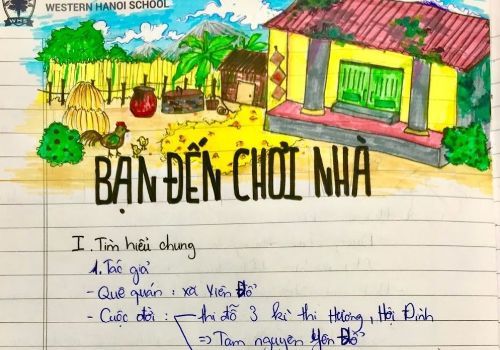 WESTERN HANOI SCHOOL
WHS
BẠN ĐẾN CHƠI NHÀ
I. Tìm hiểu chung
1. Tác giả
- Quê quán : xã Yên Đổ
- Cuộc đời : thi đỗ 3 kì thi Hương, Hội Đình
⇒ Tam nguyên Yên Đổ